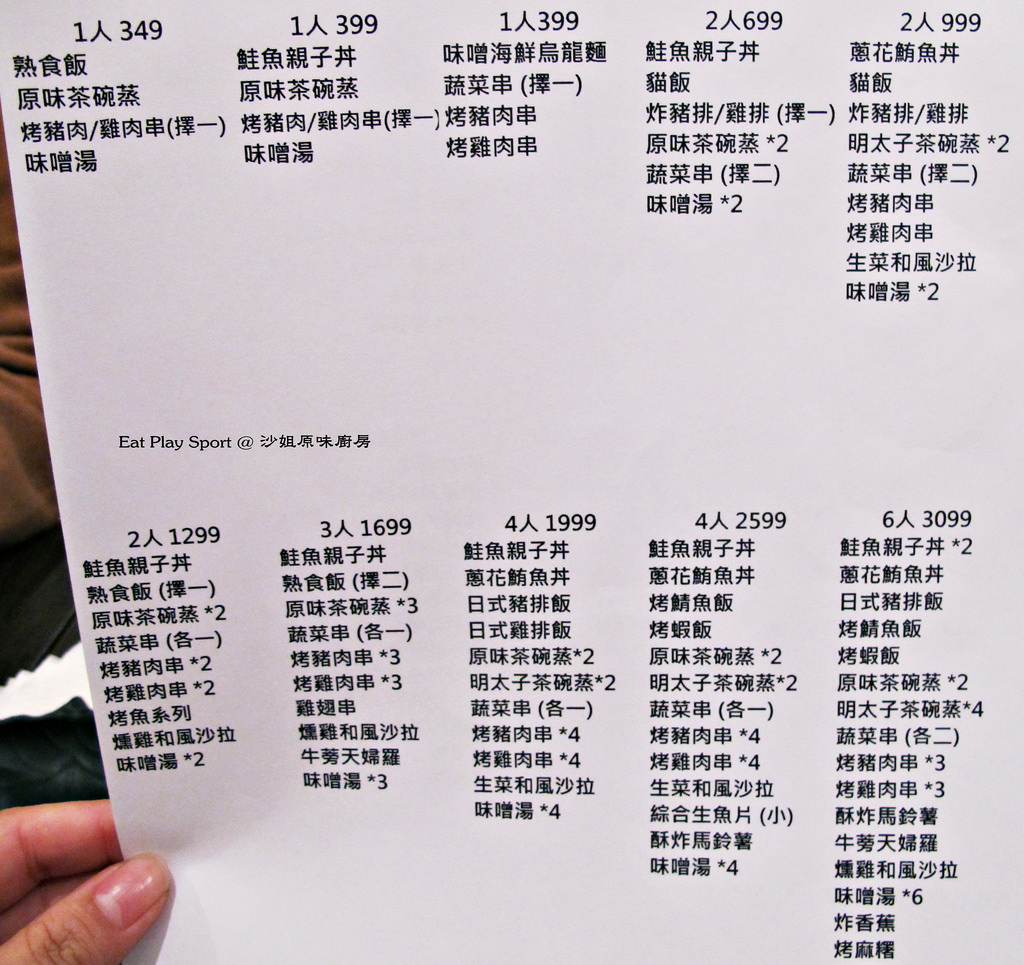 1人 349
熟食飯
原味茶碗蒸
烤豬肉/雞肉串(擇一)
味噌湯
1人 399
鮭魚親子丼
原味茶碗蒸
烤豬肉/雞肉串(擇一)
味噌湯
1人399
味噌海鮮烏龍麵
蔬菜串 (擇一)
烤豬肉串
烤雞肉串
2人699
鮭魚親子丼
貓飯
炸豬排/雞排 (擇一)
原味茶碗蒸 *2
蔬菜串 (擇二)
味噌湯 *2
2人 999
蔥花鮪魚丼
貓飯
炸豬排/雞排
明太子茶碗蒸 *2
蔬菜串 (擇二)
烤豬肉串
烤雞肉串
生菜和風沙拉
味噌湯 *2
Eat Play Sport @ 沙姐原味廚房
2人 1299
鮭魚親子丼
熟食飯 (擇一)
原味茶碗蒸 *2
蔬菜串 (各一)
烤豬肉串 *2
烤雞肉串 *2
烤魚系列
燻雞和風沙拉
味噌湯 *2
3人 1699
鮭魚親子丼
熟食飯 (擇二)
原味茶碗蒸 *3
蔬菜串 (各一)
烤豬肉串 *3
烤雞肉串 *3
雞翅串
燻雞和風沙拉
牛蒡天婦羅
味噌湯 *3
4人 1999
鮭魚親子丼
蔥花鮪魚丼
日式豬排飯
日式雞排飯
原味茶碗蒸*2
明太子茶碗蒸*2
蔬菜串 (各一)
烤豬肉串 *4
烤雞肉串 *4
生菜和風沙拉
味噌湯 *4
4人 2599
鮭魚親子丼
蔥花鮪魚丼
烤鯖魚飯
烤蝦飯
原味茶碗蒸 *2
明太子茶碗蒸*2
蔬菜串 (各一)
烤豬肉串 *4
烤雞肉串 *4
生菜和風沙拉
綜合生魚片 (小)
酥炸馬鈴薯
味噌湯 *4
6人 3099
鮭魚親子丼 *2
蔥花鮪魚丼
日式豬排飯
烤鯖魚飯
烤蝦飯
原味茶碗蒸 *2
明太子茶碗蒸*4
蔬菜串 (各二)
烤豬肉串 *3
烤雞肉串 *3
酥炸馬鈴薯
牛蒡天婦羅
燻雞和風沙拉
味噌湯 *6
炸香蕉
烤麻糬